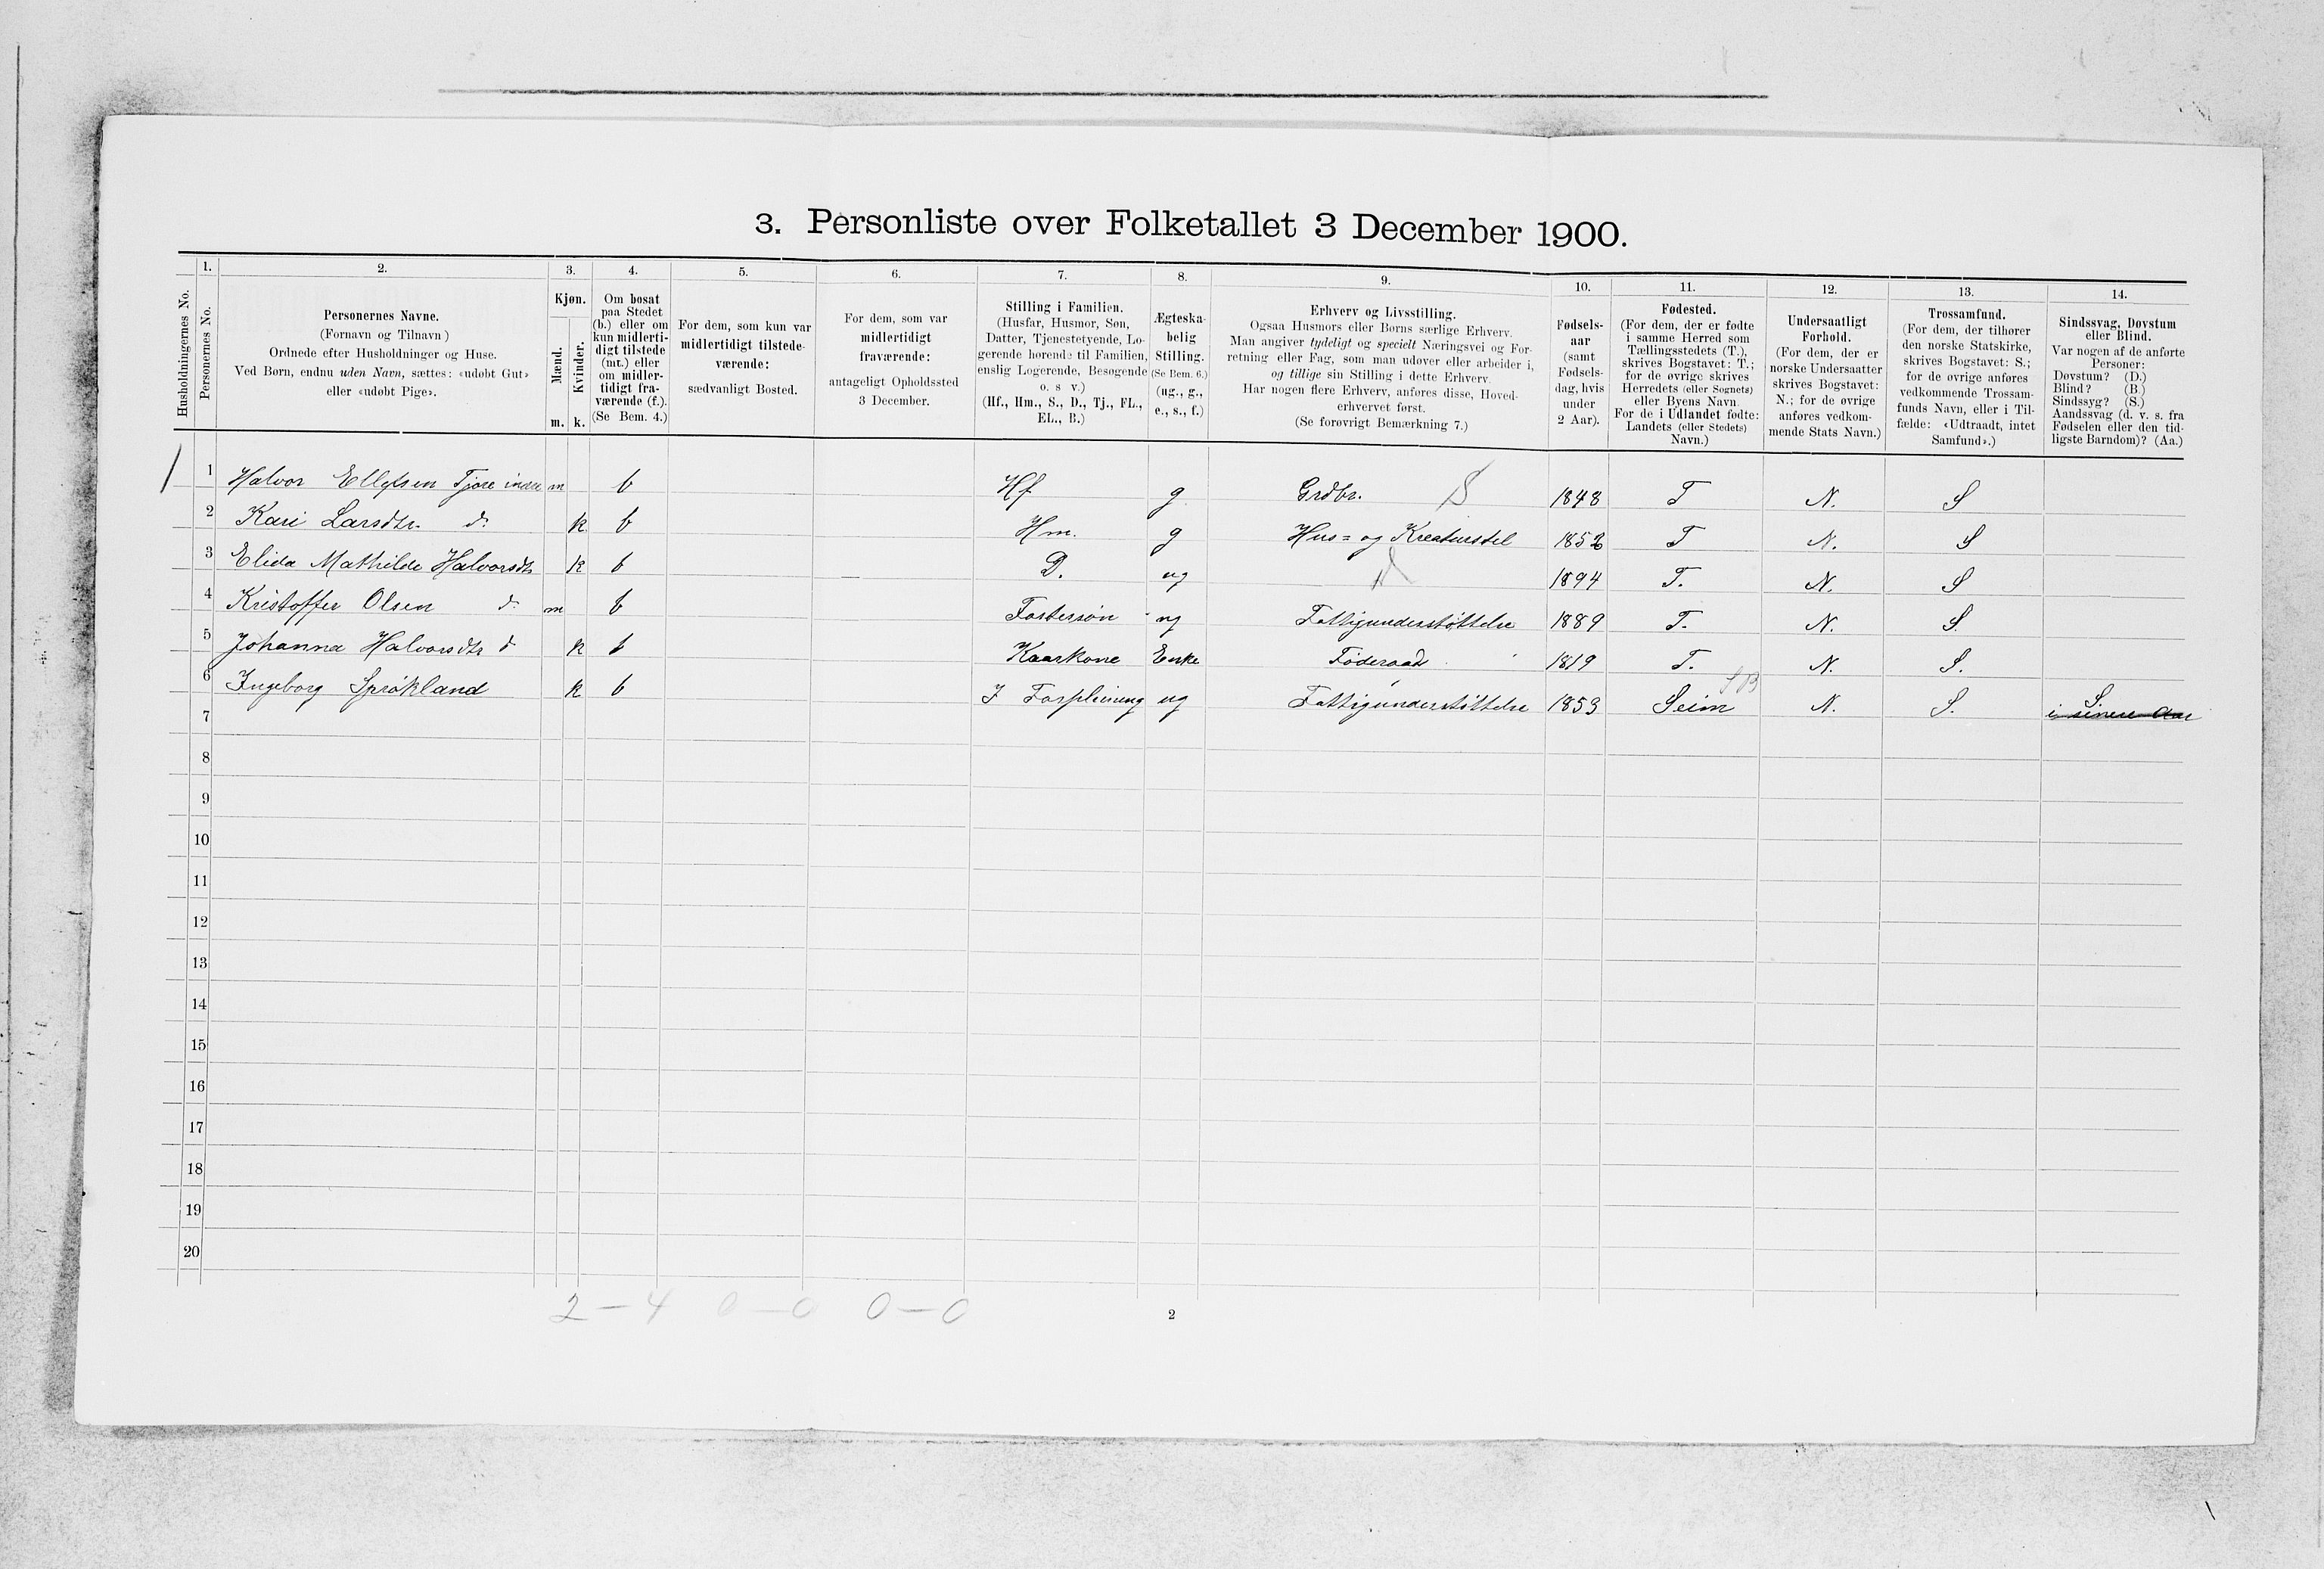 3. Personliste over Folketallet 3 December 1900.
1. 2. 3. 4. 5. 6. 7. 8. 9. 10. 11. 12. 13. 14.
Husholdningernes No.
Personernes No.
Personernes Navne.
(Fornavn og Tilnavn)
Ordnede efter Husholdninger og Huse.
Ved Børn, endnu uden Navn, sættes: «udøbt Gut»
eller «udøbt Pige».
Kjøn.
Mænd.
Kvinder.
m. k.
Om bosat
paa Stedet
(b.) eller om
kun midlerti-
digt tilstede
(mt.) eller
om midler-
tidigt fra-
værende (f.).
(Se Bem. 4.)
For dem, som kun var
midlertidigt tilstede-
værende:
sædvanligt Bosted.
For dem, som var
midlertidigt
fraværende:
antageligt Opholdssted
3 December.
Stilling i Familien.
(Husfar, Husmor, Søn,
Datter, Tjenestetyende, Lo-
gerende hørende til Familien,
enslig Logerende, Besøgende
o. s v.)
(Hf., Hm., S., D., Tj., FL.,
EL., B.)
Ægteska-
belig
Stilling.
(Se Bem. 6.)
(ug., g.,
e., s., f.)
Erhverv og Livsstilling.
Ogsaa Husmors eller Børns særlige Erhverv.
Man angiver tydeligt og specielt Næringsvei og For-
retning eller Fag, som man udøver eller arbeider i,
og tillige sin Stilling i dette Erhverv.
Har nogen flere Erhverv, anføres disse, Hoved-
erhvervet først.
(Se forøvrigt Bemærkning 7.)
Fødsels-
aar
(samt
Fødsels-
dag, hvis
under
2 Aar).
Fødested.
(For dem, der er fødte
i samme Herred som
Tællingsstedets (T.),
skrives Bogstavet: T.;
for de øvrige skrives
Herredets (eller Sognets)
eller Byens Navn.
For de i Udlandet fødte:
Landets (eller Stedets)
Navn.)
Undersaatligt
Forhold.
(For dem, der er
norske Undersaatter
skrives Bogstavet:
N.; for de øvrige
anføres vedkom-
mende Stats Navn.)
Trossamfund.
(For dem, der tilhører
den norske Statskirke,
skrives Bogstavet: S.;
for de øvrige anføres
vedkommende Trossam-
funds Navn, eller i Til-
fælde: «Udtraadt, intet
Samfund».)
Sindssvag, Døvstum
eller Blind.
Var nogen af de anførte
Personer:
Døvstum? (D.)
Blind? (B.)
Sindssyg? (S.)
Aandssvag (d. v. s. fra
Fødselen eller den tid-
ligste Barndom)? (Aa.)
1 1 Halvor Ellefsen Tjore indre m b Hf g Grdbr. S 1848 T N. S
2 Kari Larsdtr. do k b Hm. g Hus= og Kreaturstel 1852 T N. S
3 Elida Mathilde Halvorsdtr k b D. ug 1894 T. N. S
4 Kristoffer Olsen do m b Fostersøn ug Fattigunderstøttelse 1889 T. N. S.
5 Johanna Halvorsdtr do k b Kaarkone Enke Føderaad 1819 T. N. S.
6 Ingeborg Sprøkland k b I Forpleining ug Fattigunderstøttelse 1853 Seim N. S. S.
i senere Aar
7
8
9
10
11
12
13
14
15
16
17
18
19
20
2 — 4 0 — 0 0 — 0
2